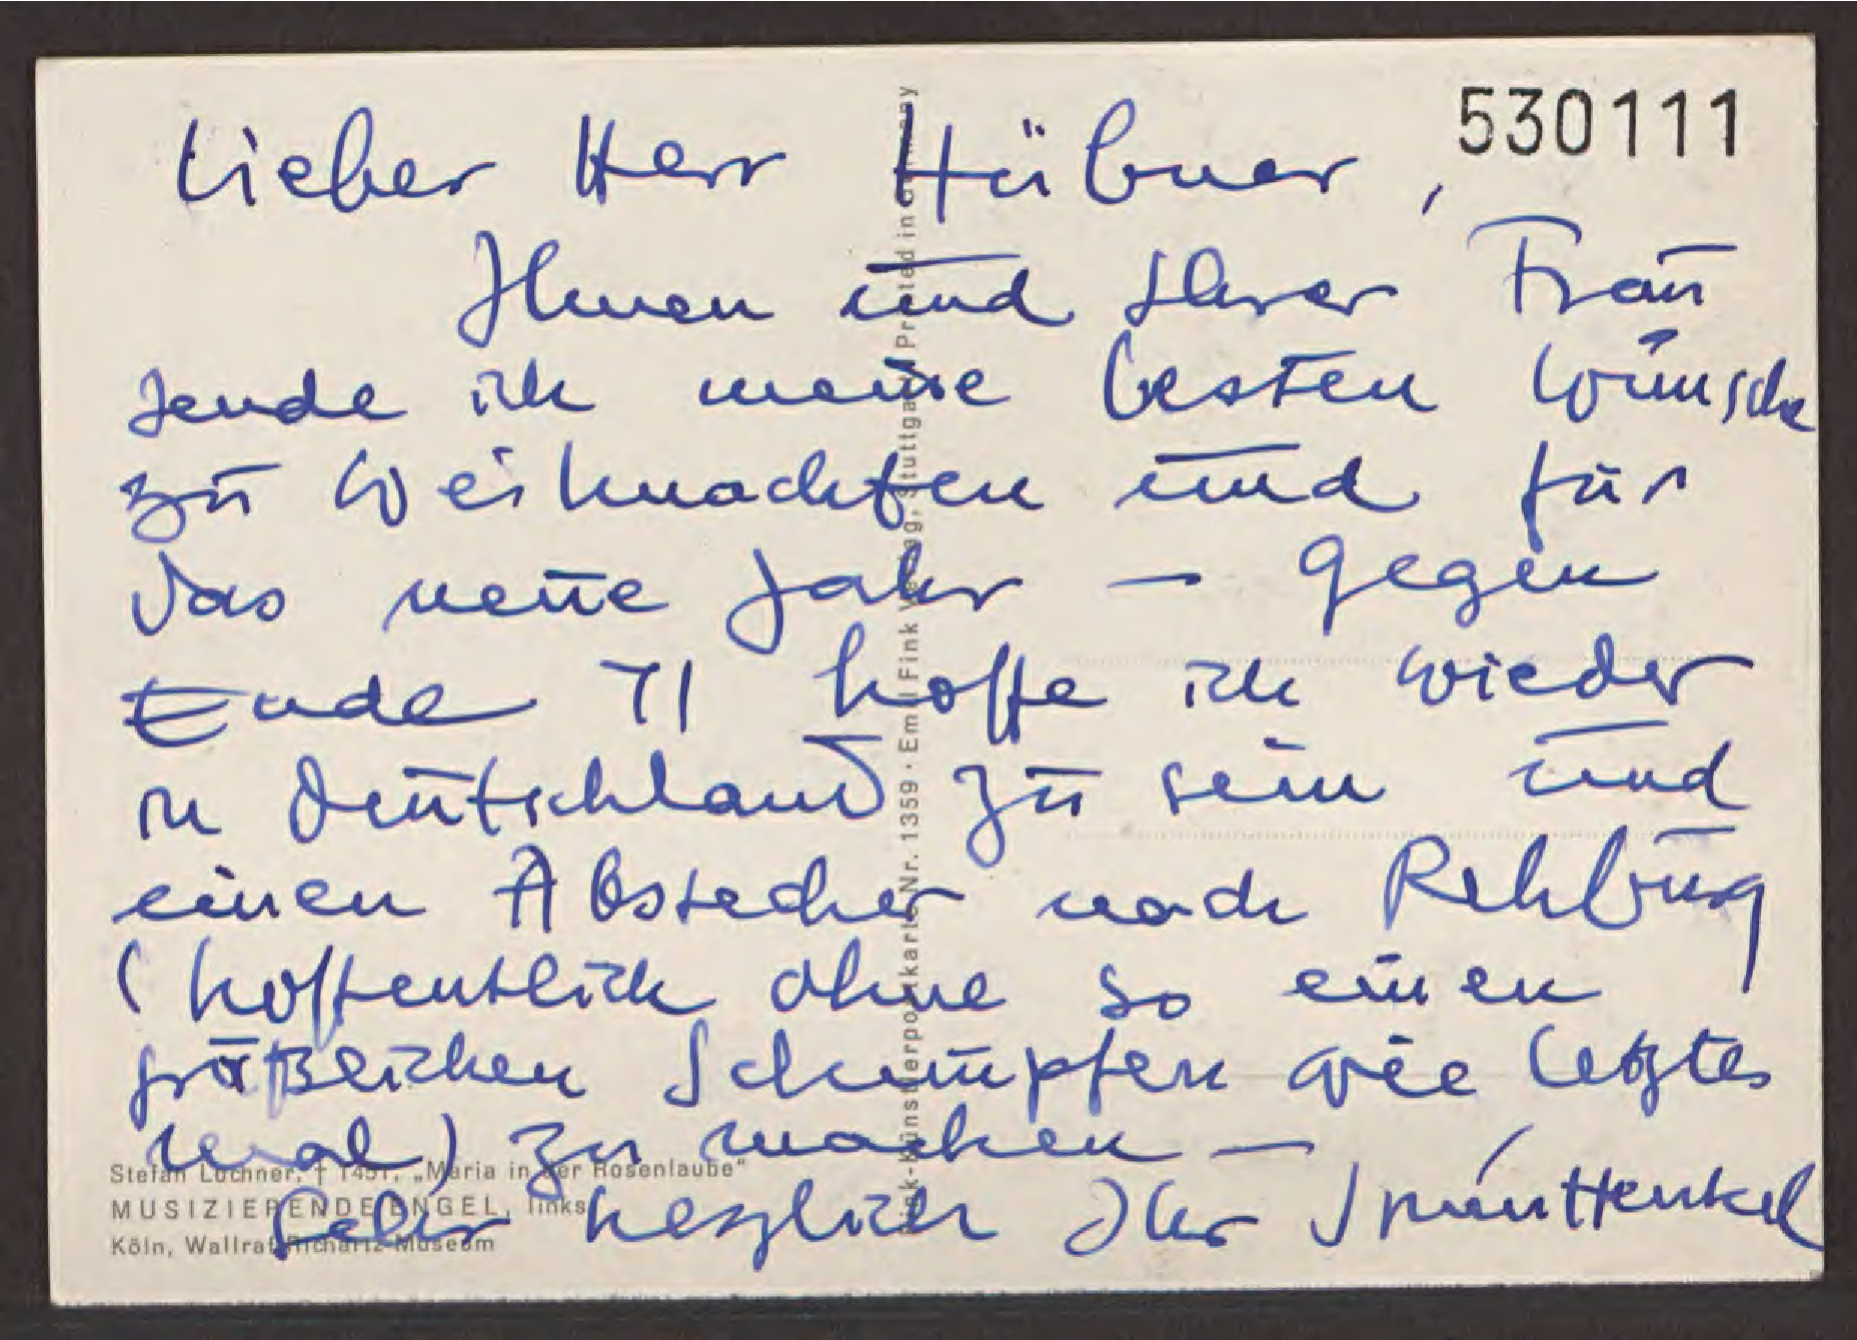 530111
Lieber Herr Hübner,
Ihnen und Ihrer Frau
sende ich meine besten Wünsche
zu Weihnachten und für
das neue Jahr — gegen
Ende 71 hoffe ich wieder
in Deutschland zu sein und
einen Abstecher nach Rehburg
(hoffentlich ohne so einen
gräßlichen Schnupfen wie letztes
Mal) zu machen —
Sehr herzlich Ihr
Stefan Lochner, † 1451, „Maria in der Rosenlaube"
MUSIZIERENDE ENGEL, links
Köln, Wallraf-Richartz-Museum
Fink-Künstlerpostkarte Nr. 1359 · Emil Fink Verlag, Stuttgart Printed in Germany